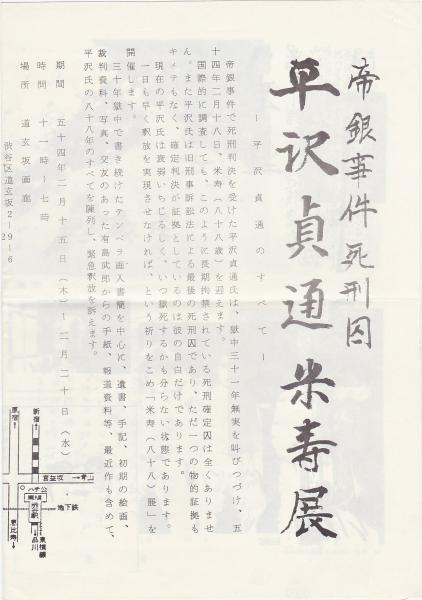 帝銀事件死刑囚
平沢貞通米寿展
―平沢貞通のすべて―
帝銀事件で死刑判決を受けた平沢貞通氏は、獄中三十一年無実を叫びつづけ、五
十四年二月十八日、米寿（八十八歳）を迎えます。
国際的に調査しても、このように長期拘禁されている死刑確定囚は全くありませ
ん。また平沢氏は旧刑事訴訟法による最後の死刑囚であり、ただ一つの物的証拠も
キメテもなく、確定判決が証拠としているのは彼の自白だけであります。
現在の平沢氏は衰弱いちじるしく、いつ獄死するかも分らない状態であります。
一日も早く釈放を実現させなければ、という祈りをこめ「米寿（八十八）展」を
開催します。
三十年獄中で書き続けたテンペラ画人書簡を中心に、遺書、手記、初期の絵画、
裁判資料、写真、交友のあった有島武郎からの手紙、報道資料等、最近作も含めて、
平沢氏の八十八年のすべてを陳列し、緊急釈放を訴えます。
期間　五十四年二月十五日（木）―二月二十日（水）
時間　十一時―七時
場所　道玄坂画廊
渋谷区道玄坂2-29-6
新宿
原宿
宮益坂
→青山
ハチ公
東横
渋谷駅
→地下鉄
東横線
品川
恵比寿